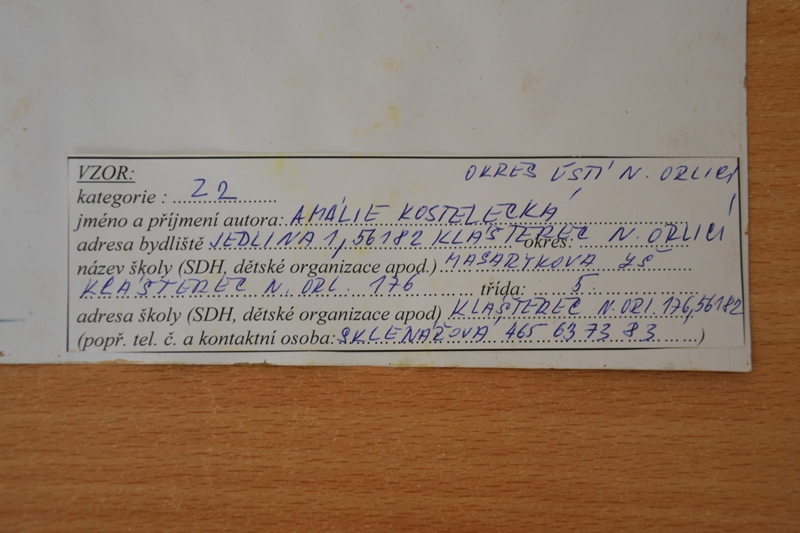 VZOR: OKRES ÚSTÍ N. ORLICÍ
kategorie : Z2
jméno a příjmení autora: AMÁLIE KOSTELECKÁ
adresa bydliště JEDLINA 1, 56182 KLÁŠTEREC okres: N. ORLICÍ
název školy (SDH, dětské organizace apod.) MASARYKOVA ZŠ
KLÁŠTEREC N. ORL. 176 třída: 5.
adresa školy (SDH, dětské organizace apod) KLÁŠTEREC N. ORL. 176, 56182
(popř. tel. č. a kontaktní osoba: SKLENÁŘOVÁ, 465 63 73 83 )